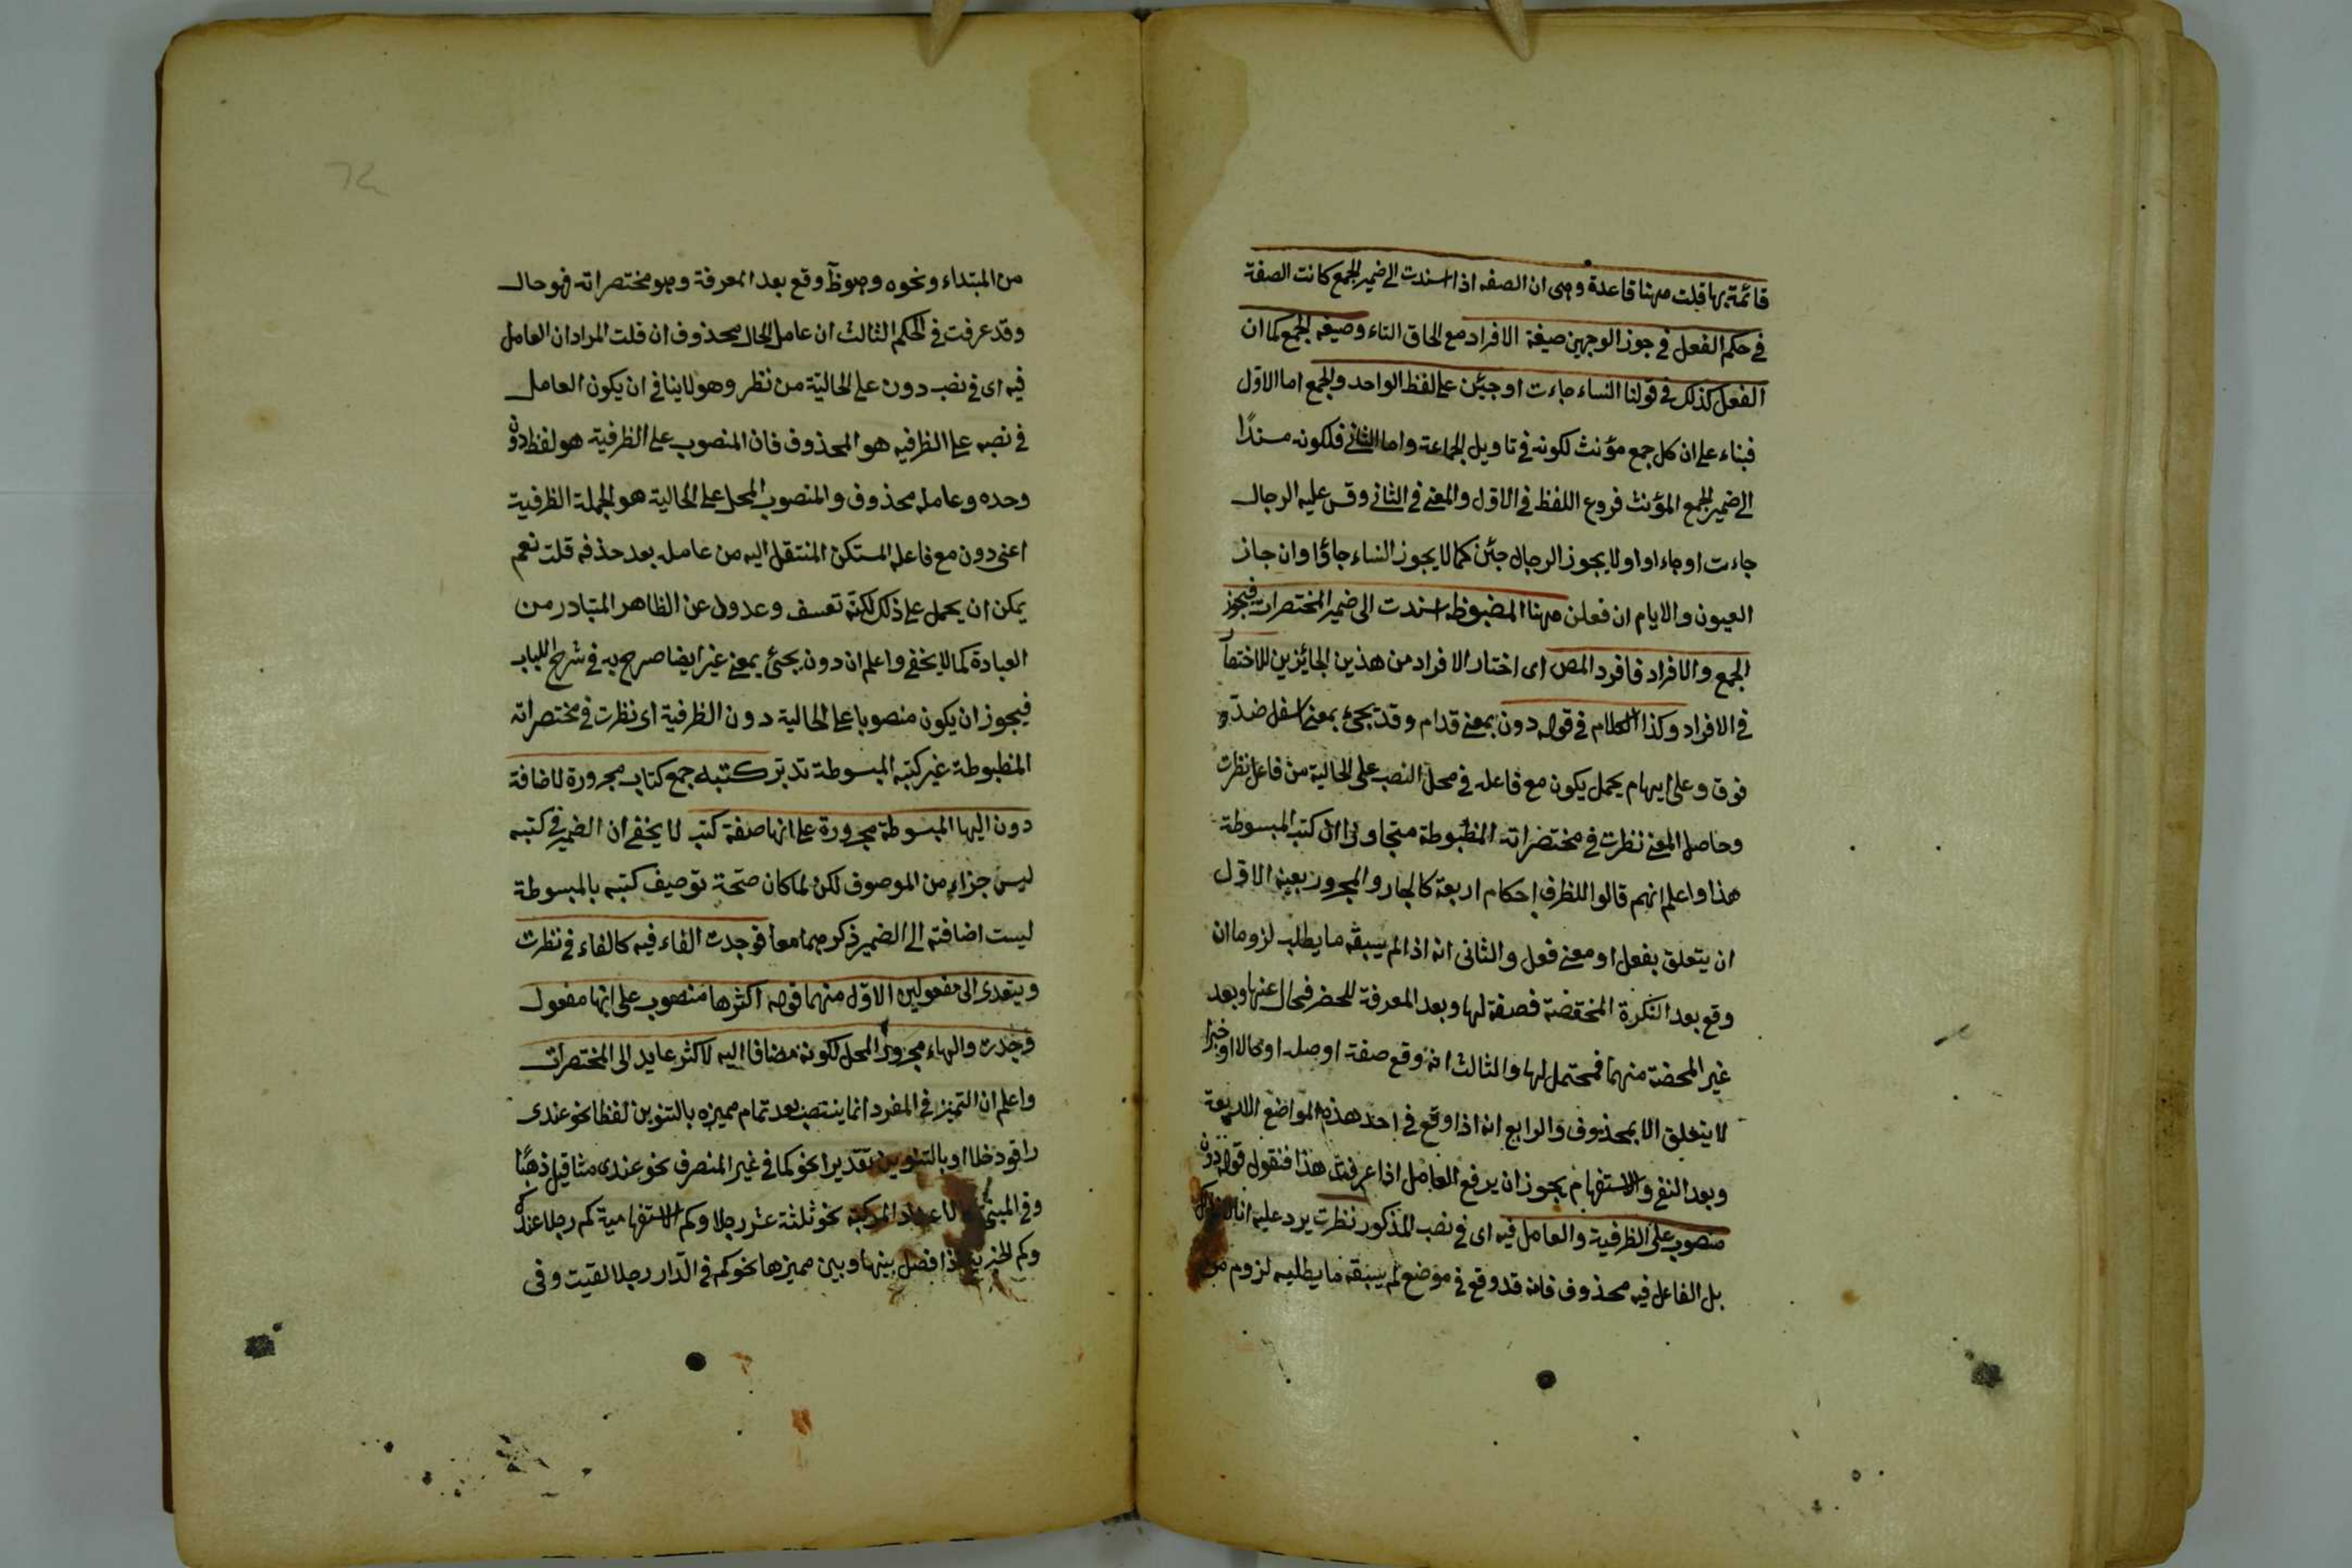 قائمة بها قلت ههنا قاعدة وهى ان الصفه اذا اسندت الى ضمير الجمع كانت الصفة
فى حكم الفعل فى جوز الوجهين صيغة الافراد مع الحاق التاء وصيغه الجمع كما ان
الفعل كذلك فى قولنا النساء جاءت او جئن على لفظ الواحد والجمع اما الاول
فبناء على ان كل جمع مؤنث لكونه فى تاويل الجماعة واما الثانى فلكونه مسندًا
الى ضمير الجمع المؤنث فروع اللفظ فى الاول والمعنى فى الثانى وقس عليه الرجال
جاءت او جاءوا ولا يجوز الرجال جئن كما لا يجوز النساء جاؤا وان جاز
العيون والايام ان فعلن ههنا المضبوظه اسندت الى ضمير المختصرات فيجوز
الجمع والافراد فافرد المص اى اختار الافراد من هذين الجائزين للاختصا
فى الافراد وكذا الكلام فى قوله دون بمعنى قدام وقد يجئ بمعنى اسفل ضد
فوق وعلى ايهام يحمل يكون مع فاعله فى محل النصب على الحالية من فاعل نظرت
وحاصل المعنى نظرت فى مختصراته المظبوطة متجاوزا كتب المبسوطة
هذا واعلم انهم قالوا للظرف احكام اربعة كالجار والمجرور بعينه الاول
ان يتعلق بفعل او معنى فعل والثانى انه اذا لم يسبقه ما يطلبه لزوما ان
وقع بعد النكرة المخفضة فصفة لها وبعد المعرفة للحضر فحال عنها وبعد
غير المحضة منهما فمحتمل لها والثالث انه وقع صفة او صله او حالا او خبرا
لا يتعلق الا بمحذوف والرابع انه اذا وقع فى احد هذه المواضع الاربعة
وبعد النفى والاستفهام يجوز ان يرفع العامل اذا عرفت هذا فنقول قوله دون
منصوب على الظرفية والعامل فيه اى فى نصب المذكور نظرت يرد عليه
بل الفاعل فيه محذوف فانه قد وقع فى موضع لم يسبقه ما يطلبه لزوم من
من المبتداء ونحوه وهو ظ وقع بعد المعرفة وهو مختصراته فهو حال
وقد عرفت فى الحكم الثالث ان عامل الحال محذوف ان قلت المراد ان العامل
فيه اى فى نصب دون على الحالية من نظر وهو لا ينافى ان يكون العامل
فى نصبه على الظرفيه هو المحذوف فان المنصوب على الظرفية هو لفظ دون
وحده وعامله محذوف والمنصوب المحل على الحالية هو الجملة الظرفية
اعنى دون مع فاعله المستكن المنتقل اليه من عامله بعد حذفه قلت نعم
يمكن ان يحمل على ذلك لكنه تعسف وعدول عن الظاهر المتبادر من
العبادة كما لا يخفى واعلم ان دون يجئ بمعنى غير ايضا صرح به فى شرح اللباب
فيجوز ان يكون منصوبا على الحالية دون الظرفية اى نظرت فى مختصراته
المظبوطة غير كتبه المبسوطة تدبر كتبه جمع كتاب مجرورة لاضافة
دون اليها المبسوطة مجرورة على انها صفة كتب لا يخفى ان الضمير فى كتبه
ليس جزاء من الموصوف لكن لما كان صحة توصيف كتبه بالمبسوطة
ليست اضافته الى الضمير ذكرهما معا فوجدت الفاء فيه كالفاء فى نظرت
ويتعدى الى مفعولين الاول منهما قوله اكثرها منصوب على انها مفعول
وجدت والهاء مجرور المحل لكونه مضافا اليه لاكثر عايد الى المختصرات
واعلم ان التميز فى المفرد انما ينتصب بعد تمام مميزه بالتنوين لفظا نحو عندى
راقود خلا او بالتنوين تقديرا نحو كما فى غير المنصرف نحو عندى مثاقيل ذهبًا
وفى المبنى الاعداد المركبة نحو ثلثة عشر رجلا وكم الاستفهامية كم رجلا عندك
وكم الخبرية اذا فصل بينها وبين مميزها نحو كم فى الدار رجلا لقيت وفى